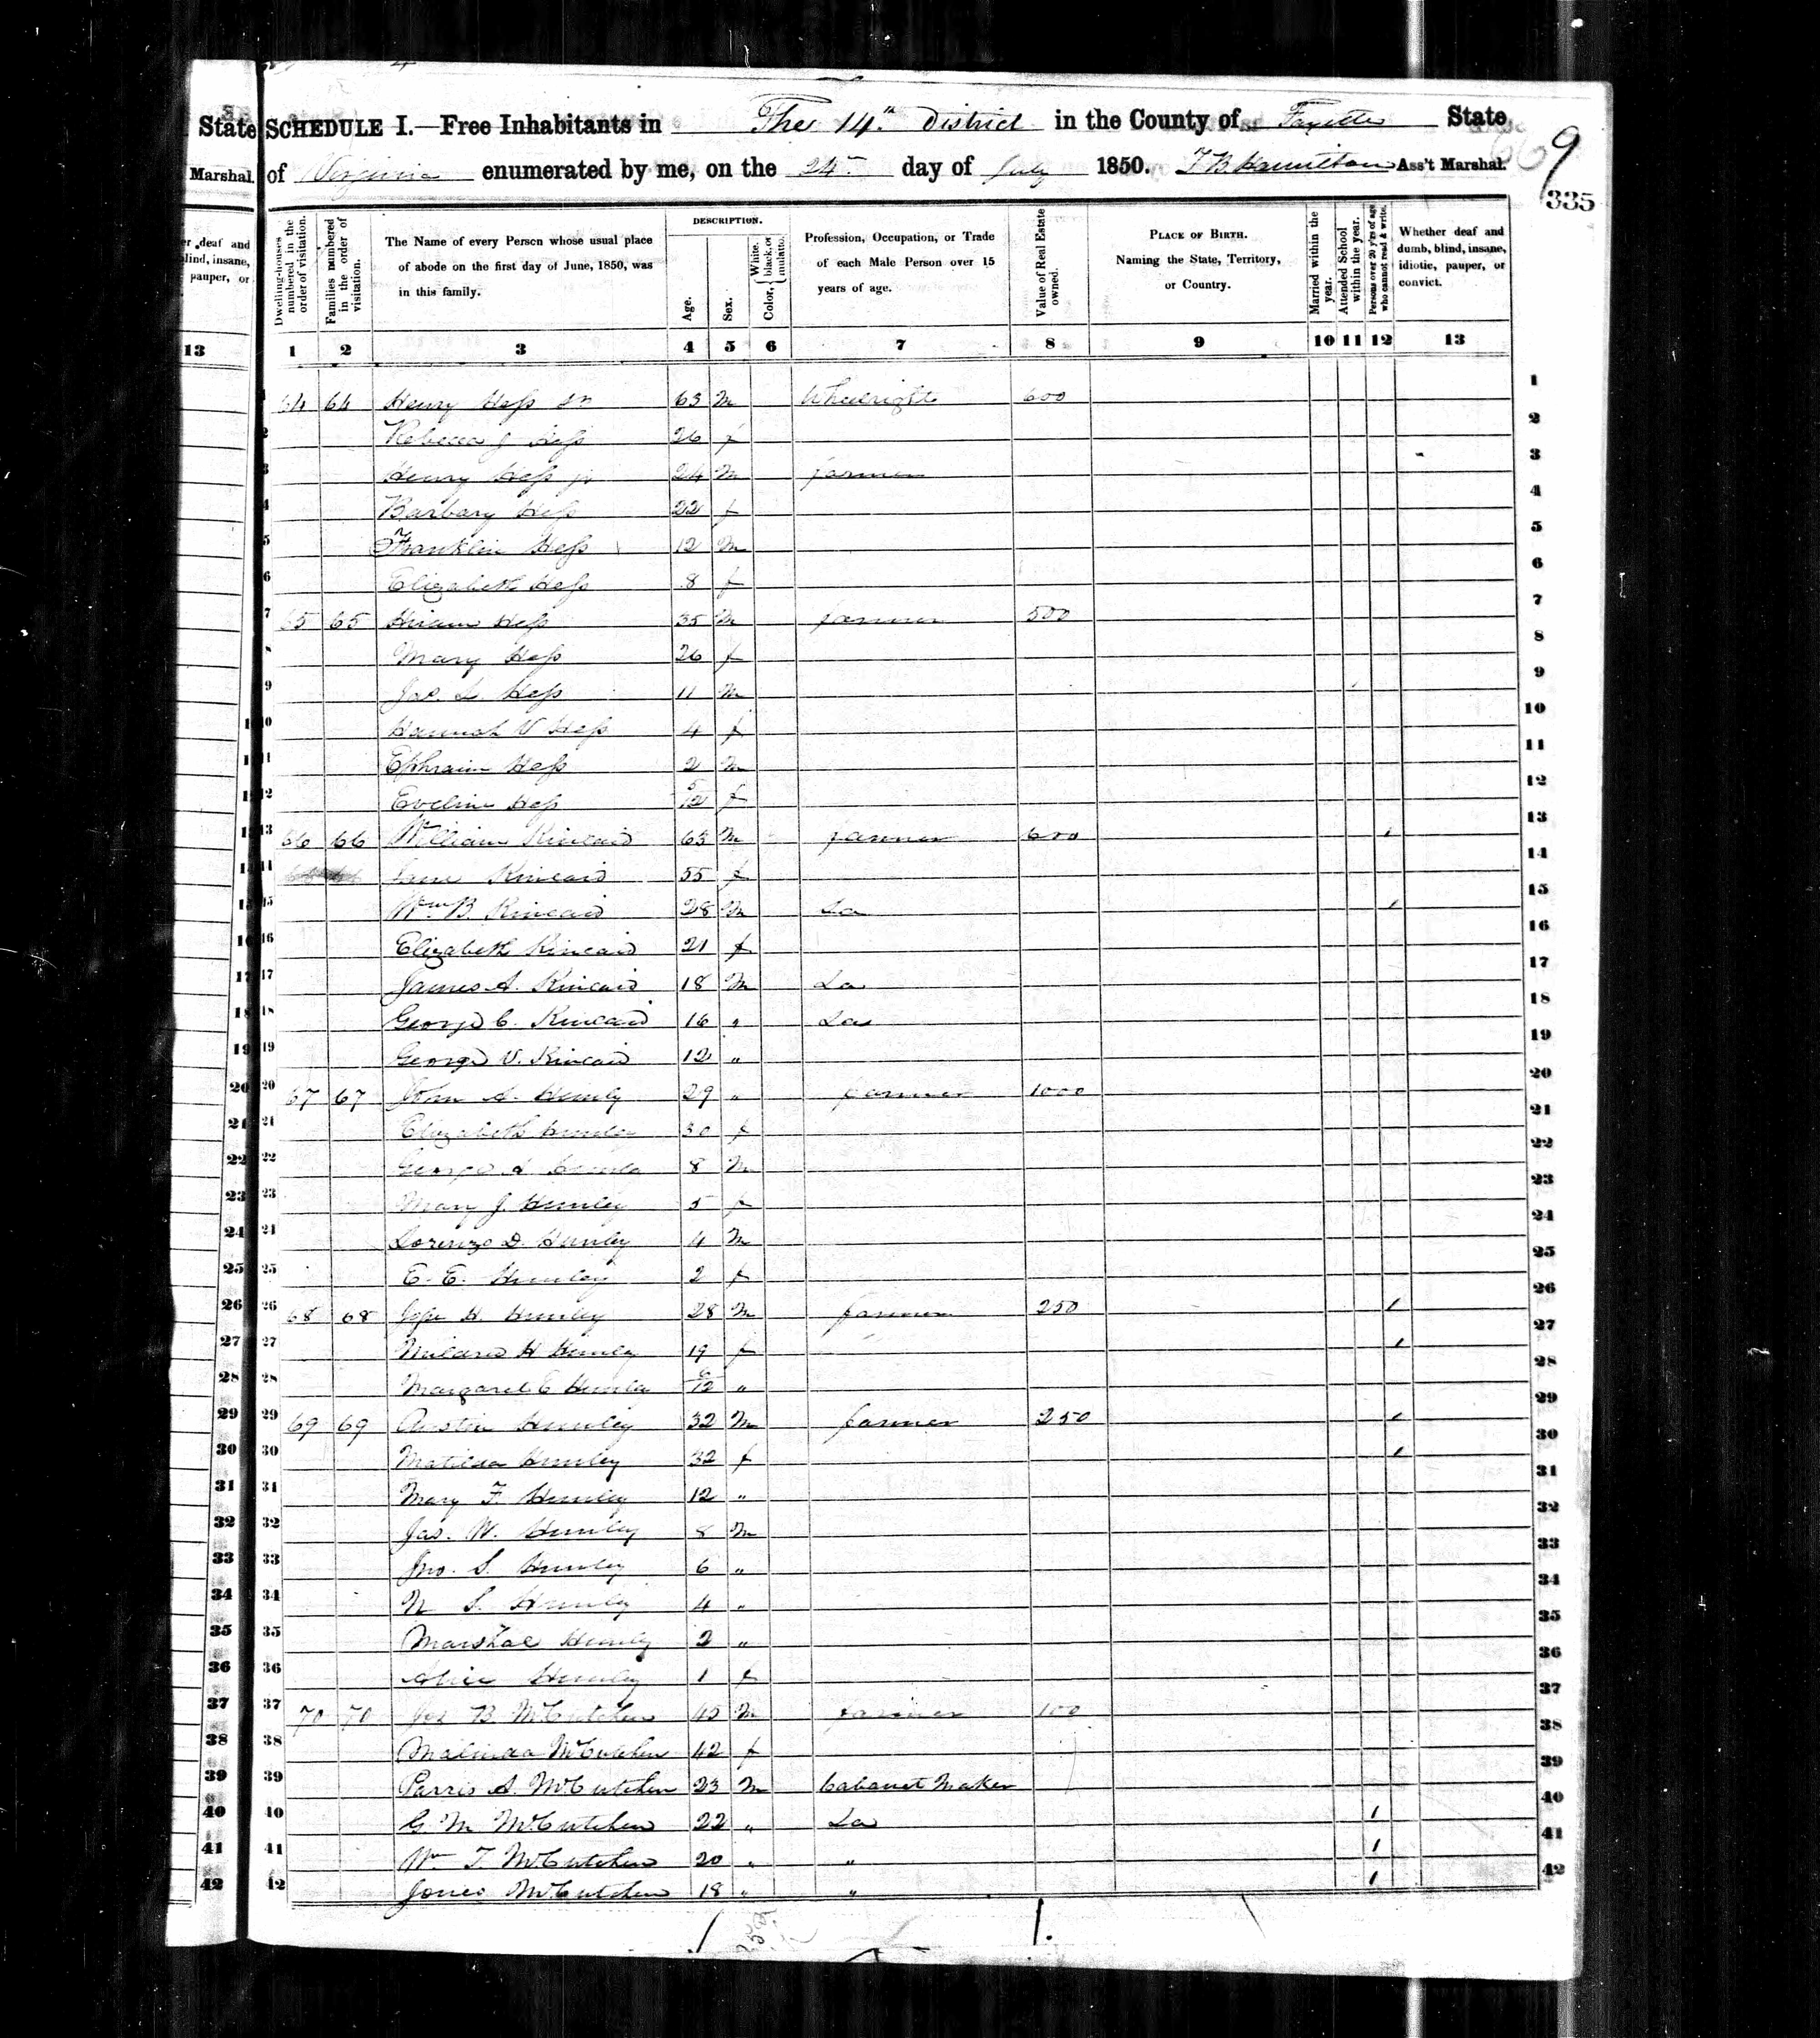 State SCHEDULE I.—Free Inhabitants in The 14th District in the County of Fayette State
Marshal. of Virginia enumerated by me, on the 24th day of July 1850. T B Hamilton Ass't Marshal.
9
335
er deaf and
blind, insane,
pauper, or
13
Dwelling-houses numbered in the order of visitation.
Families numbered in the order of visitation.
The Name of every Person whose usual place of abode on the first day of June, 1850, was in this family.
DESCRIPTION.
Age.
Sex.
Color, White, black, or mulatto.
Profession, Occupation, or Trade of each Male Person over 15 years of age.
Value of Real Estate owned.
PLACE OF BIRTH. Naming the State, Territory, or Country.
Married within the year.
Attended School within the year.
Persons over 20 y'rs of age who cannot read & write.
Whether deaf and dumb, blind, insane, idiotic, pauper, or convict.
1 2 3 4 5 6 7 8 9 10 11 12 13
1 64 64 Henry Hess Sr 63 M Wheelright 600 1
2 Rebecca J Hess 26 f 2
3 Henry Hess jr 24 M farmer 3
4 Barbary Hess 22 f 4
5 Franklin Hess 12 M 5
6 Elizabeth Hess 8 f 6
7 65 65 Hiram Hess 35 M farmer 500 7
8 Mary Hess 26 f 8
9 Jas. L. Hess 11 M 9
10 Hannah V Hess 4 f 10
11 Ephraim Hess 2 M 11
12 Eveline Hess 5/12 f 12
13 66 66 William Kincaid 63 M farmer 600 / 13
14 Jane Kincaid 55 f 14
15 Wm B Kincaid 28 M Do / 15
16 Elizabeth Kincaid 21 f 16
17 James A. Kincaid 18 M Do 17
18 George C. Kincaid 16 " Do 18
19 George V. Kincaid 12 " 19
20 67 67 John A. Hunley 29 " farmer 1000 20
21 Elizabeth Hunley 30 f 21
22 George A Hunley 8 M 22
23 Mary J. Hunley 5 f 23
24 Lorenzo D. Hunley 4 M 24
25 E. E. Hunley 2 f 25
26 68 68 Jesse H. Hunley 28 M farmer 250 / 26
27 Mildred H Hunley 19 f / 27
28 Margaret E Hunley 6/12 " 28
29 69 69 Austin Hunley 32 M farmer 250 / 29
30 Matilda Hunley 32 f / 30
31 Mary F Hunley 12 " 31
32 Jas. W. Hunley 8 M 32
33 Jno. S. Hunley 6 " 33
34 N S. Hunley 4 " 34
35 Marshal Hunley 2 " 35
36 Alice Hunley 1 f 36
37 70 70 Jos B. McCutchen 45 M farmer 100 37
38 Malinda McCutchen 42 f 38
39 Parris A. McCutchen 23 M Cabanet Maker 39
40 G. M McCutchen 22 " Do 1 40
41 Wm T. McCutchen 20 " " 1 41
42 Jones McCutchen 18 " " 1 42